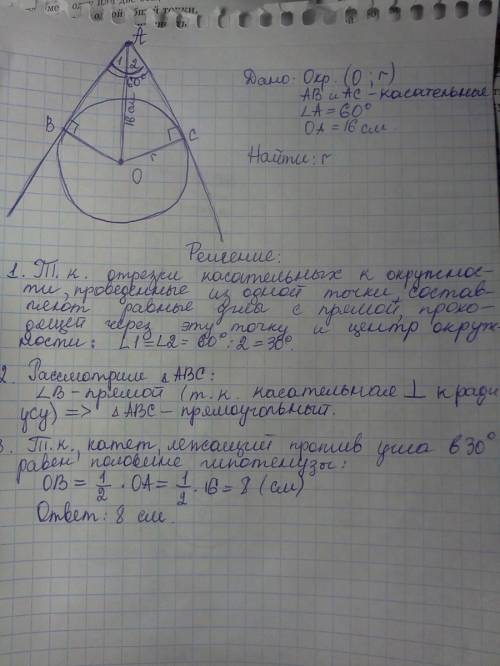 A
1 2
60°
16 см
B
C
r
O
Дано: Окр. (O; r)
AB и AC - касательные
∠A = 60°
OA = 16 см
Найти: r
Решение:
1. Т. к. отрезки касательных к окружнос-
ти, проведенные из одной точки, состав-
ляют равные углы с прямой, прохо-
дящей через эту точку и центр окруж-
ности: ∠1 = ∠2 = 60° : 2 = 30°.
2. Рассмотрим △ABC:
∠B - прямой (т. к. касательная ⊥ к ради
усу) => △ABC - прямоугольный.
3. Т. к. катет, лежащий против угла в 30°
равен половине гипотенузы:
OB = 1/2 · OA = 1/2 · 16 = 8 (см)
Ответ: 8 см.